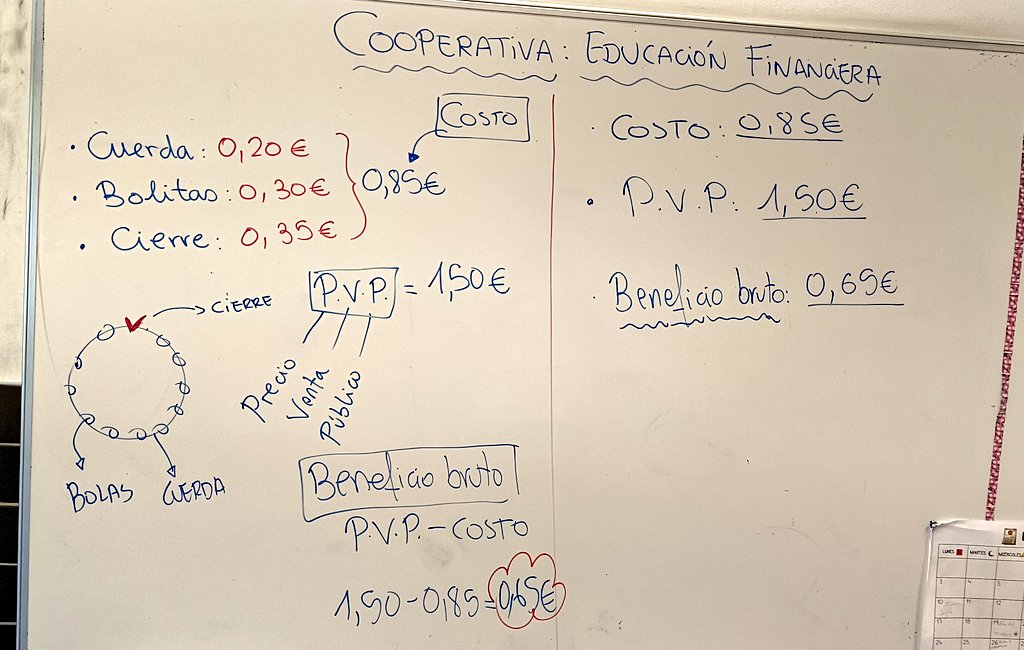 COOPERATIVA: EDUCACIÓN FINANCIERA
COSTO
· Cuerda: 0,20€
· Bolitas: 0,30€
· Cierre: 0,35€
0,85€
P.V.P. = 1,50€
Precio
Venta
Público
CIERRE
BOLAS
CUERDA
Beneficio bruto
P.V.P. - COSTO
1,50-0,85=0,65€
· COSTO: 0,85€
· P.V.P: 1,50€
· Beneficio bruto: 0,65€
LUNES MARTES MIÉRCOLES
3 4 5
10 11 12
17 18 19
24 25 26